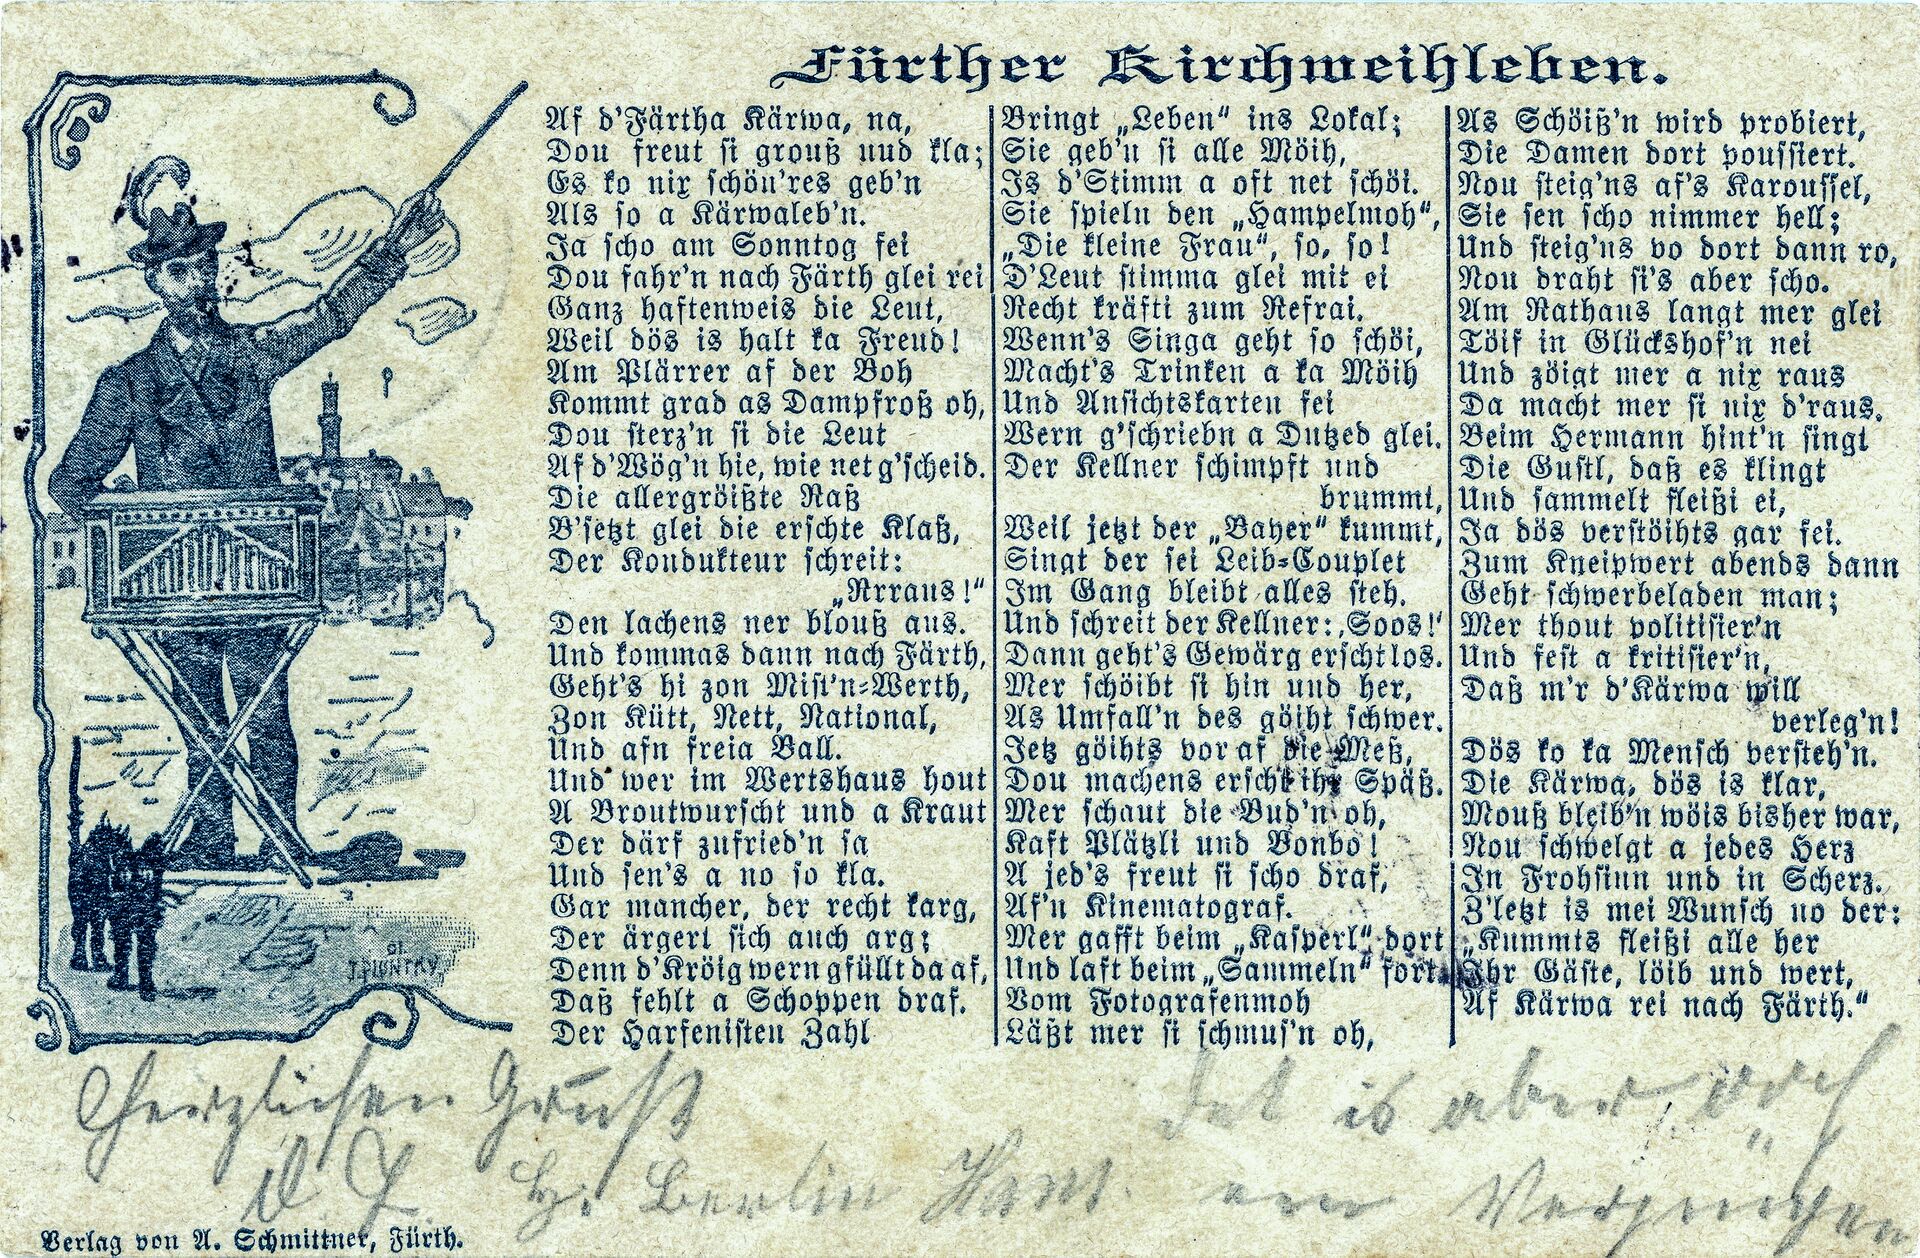 Fürther Kirchweihleben.
Af d'Färtha Kärwa, na,
Dou freut si grouß uud kla;
Es ko nix schön'res geb'n
Als so a Kärwaleb'n.
Ja scho am Sonntog fei
Dou fahr'n nach Färth glei rei
Ganz haftenweis die Leut,
Weil dös is halt ka Freud!
Am Plärrer af der Boh
Kommt grad as Dampfroß oh,
Dou sterz'n si die Leut
Af d'Wög'n hie, wie net g'scheid.
Die allergröißte Raß
B'setzt glei die erschte Klaß,
Der Kondukteur schreit:
„Rrraus!“
Den lachens ner blouß aus.
Und kommas dann nach Färth,
Geht's hi zon Mist'n=Werth,
Zon Kütt, Nett, National,
Und afn freia Ball.
Und wer im Wertshaus hout
A Broutwurscht und a Kraut
Der därf zufried'n sa
Und sen's a no so kla.
Gar mancher, der recht karg,
Der ärgert sich auch arg;
Denn d'Kröig wern gfüllt da af,
Daß fehlt a Schoppen draf.
Der Harfenisten Zahl
Bringt „Leben“ ins Lokal;
Sie geb'n si alle Möih,
Is d'Stimm a oft net schöi.
Sie spieln den „Hampelmoh“,
„Die kleine Frau“, so, so!
D'Leut stimma glei mit ei
Recht kräfti zum Refrai.
Wenn's Singa geht so schöi,
Macht's Trinken a ka Möih
Und Ansichtskarten fei
Wern g'schriebn a Dutzed glei.
Der Kellner schimpft und
brummt,
Weil jetzt der „Bayer“ kummt,
Singt der sei Leib=Couplet
Im Gang bleibt alles steh.
Und schreit der Kellner: ‚Soos!'
Dann geht's Gewärg erscht los.
Mer schöibt si hin und her,
As Umfall'n des göiht schwer.
Jetz göihts vor af die Meß,
Dou machens erscht ihr Späß.
Mer schaut die Bud'n oh,
Kaft Plätzli und Bonbo!
A jed's freut si scho draf,
Af'n Kinematograf.
Mer gafft beim „Kasperl“ dort
Und laft beim „Sammeln“ fort
Vom Fotografenmoh
Läßt mer si schmus'n oh,
As Schöiß'n wird probiert,
Die Damen dort poussiert.
Nou steig'ns af's Karoussel,
Sie sen scho nimmer hell;
Und steig'ns vo dort dann ro,
Nou draht si's aber scho.
Am Rathaus langt mer glei
Töif in Glückshof'n nei
Und zöigt mer a nix raus
Da macht mer si nix d'raus.
Beim Hermann hint'n singt
Die Gustl, daß es klingt
Und sammelt fleißi ei,
Ja dös verstöihts gar fei.
Zum Kneipwert abends dann
Geht schwerbeladen man;
Mer thout politisier'n
Und fest a kritisier'n,
Daß m'r d'Kärwa will
verleg'n!
Dös ko ka Mensch versteh'n.
Die Kärwa, dös is klar,
Mouß bleib'n wöis bisher war,
Nou schwelgt a jedes Herz
In Frohsinn und in Scherz.
Z'letzt is mei Wunsch no der:
„Kummts fleißi alle her
Ihr Gäste, löib und wert,
Af Kärwa rei nach Färth.“
Herzlichen Gruß
Berlin Hans.
Det is aber
een Vergnügen
Verlag von A. Schmittner, Fürth.